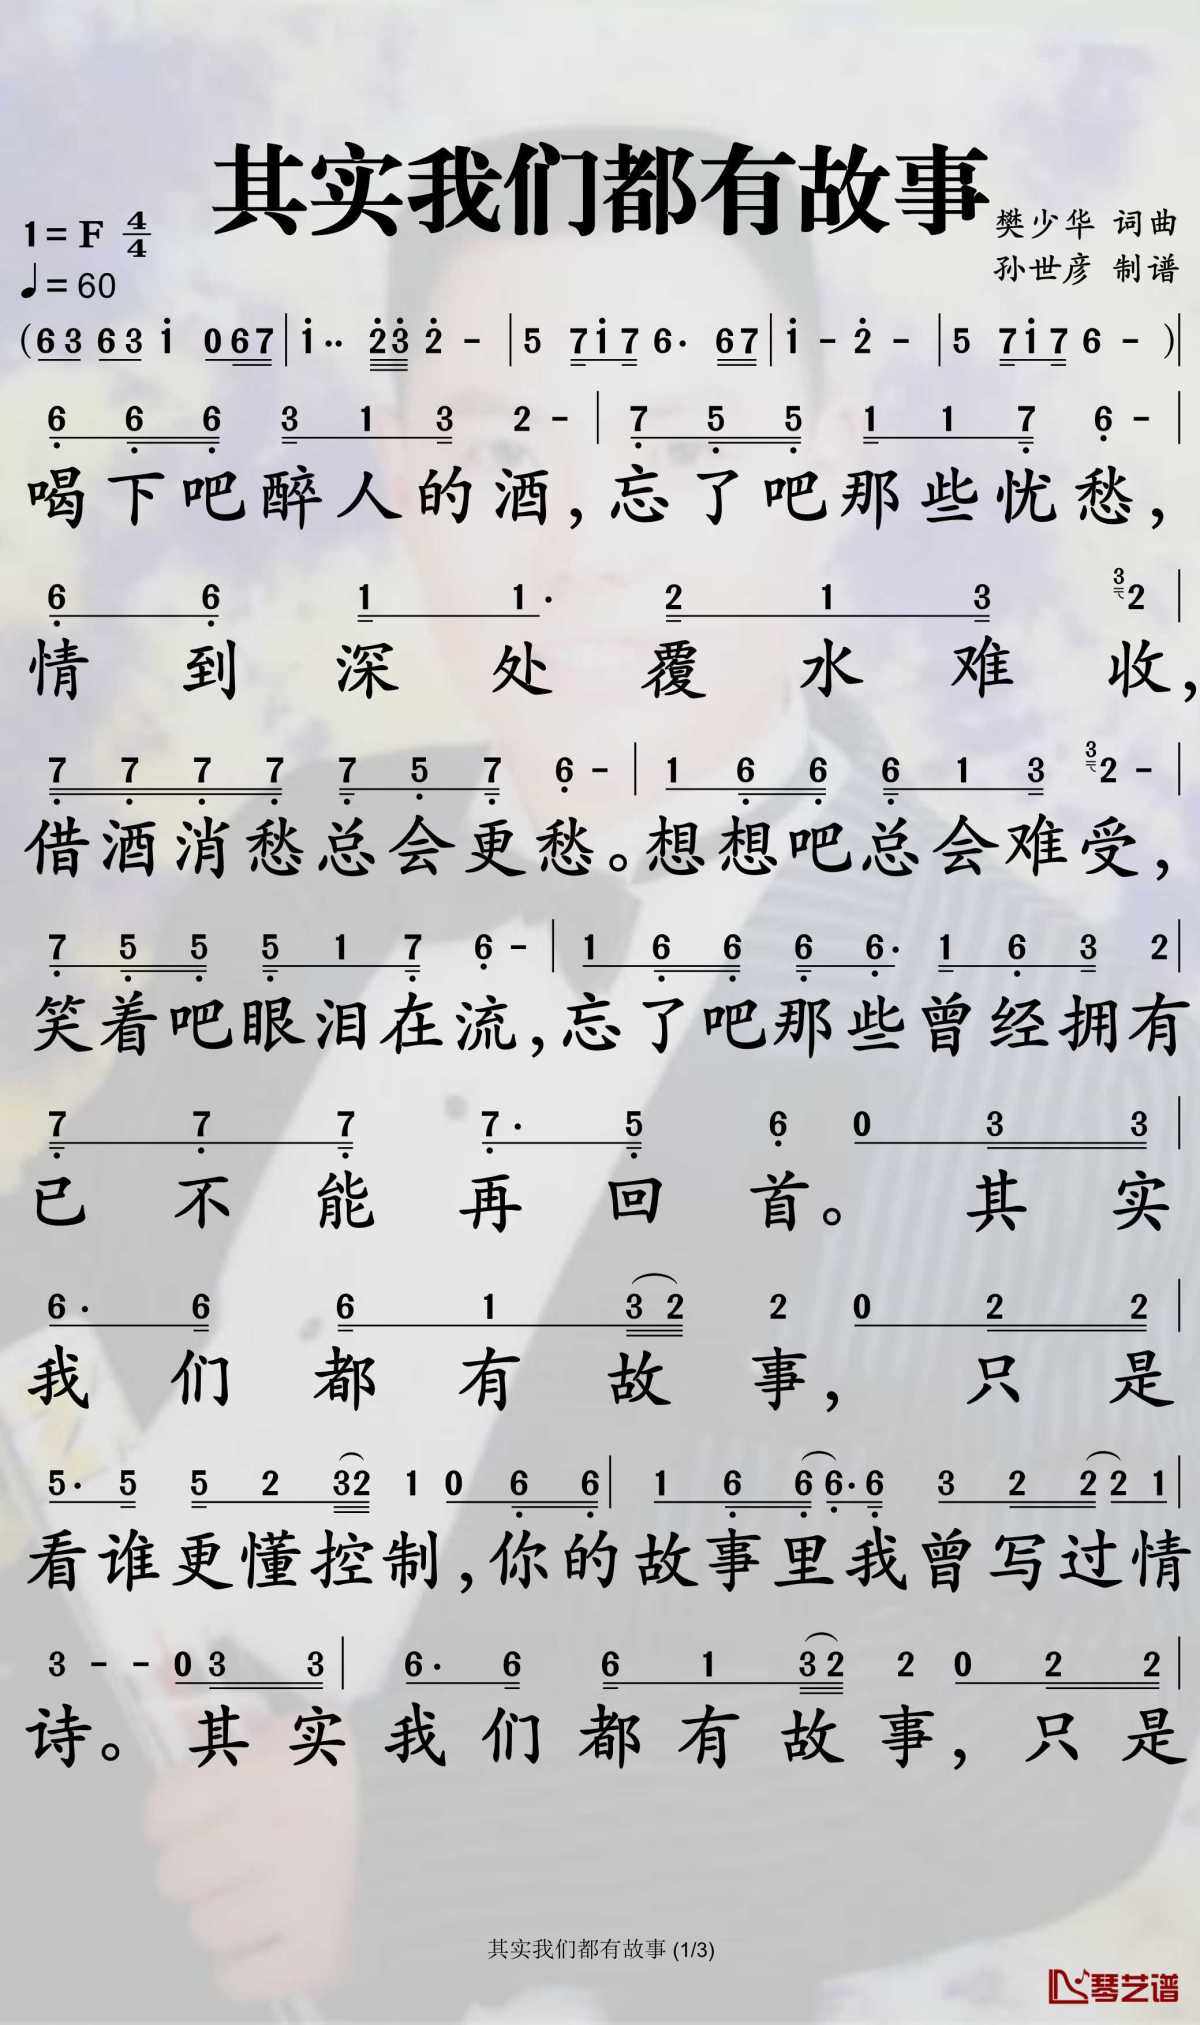 其实我们都有故事
1= F 4/4
樊少华 词曲
♩= 60
孙世彦 制谱
(63 63 1 067 | 1·· 23 2 - | 5 717 6· 67 | 1 - 2 - | 5 717 6 - )|
6 6 6 3 1 3 2 - | 7 5 5 1 1 7 6 - |
喝下吧醉人的酒，忘了吧那些忧愁，
6 6 1 1· 2 1 3 3 2 |
情到深处覆水难收，
7 7 7 7 7 5 7 6 - | 1 6 6 6 1 3 3 2 - |
借酒消愁总会更愁。想想吧总会难受，
7 5 5 5 1 7 6 - | 1 6 6 6 6· 1 6 3 2 |
笑着吧眼泪在流，忘了吧那些曾经拥有
7 7 7 7· 5 6 0 3 3 |
已不能再回首。其实
6· 6 6 1 3 2 2 0 2 2 |
我们都有故事，只是
5· 5 5 2 32 1 0 6 6 | 1 6 6 6· 6 3 2 2 2 1 |
看谁更懂控制，你的故事里我曾写过情
3 - - 0 3 3 | 6· 6 6 1 3 2 2 0 2 2 |
诗。其实我们都有故事，只是
其实我们都有故事 (1/3)
琴艺谱